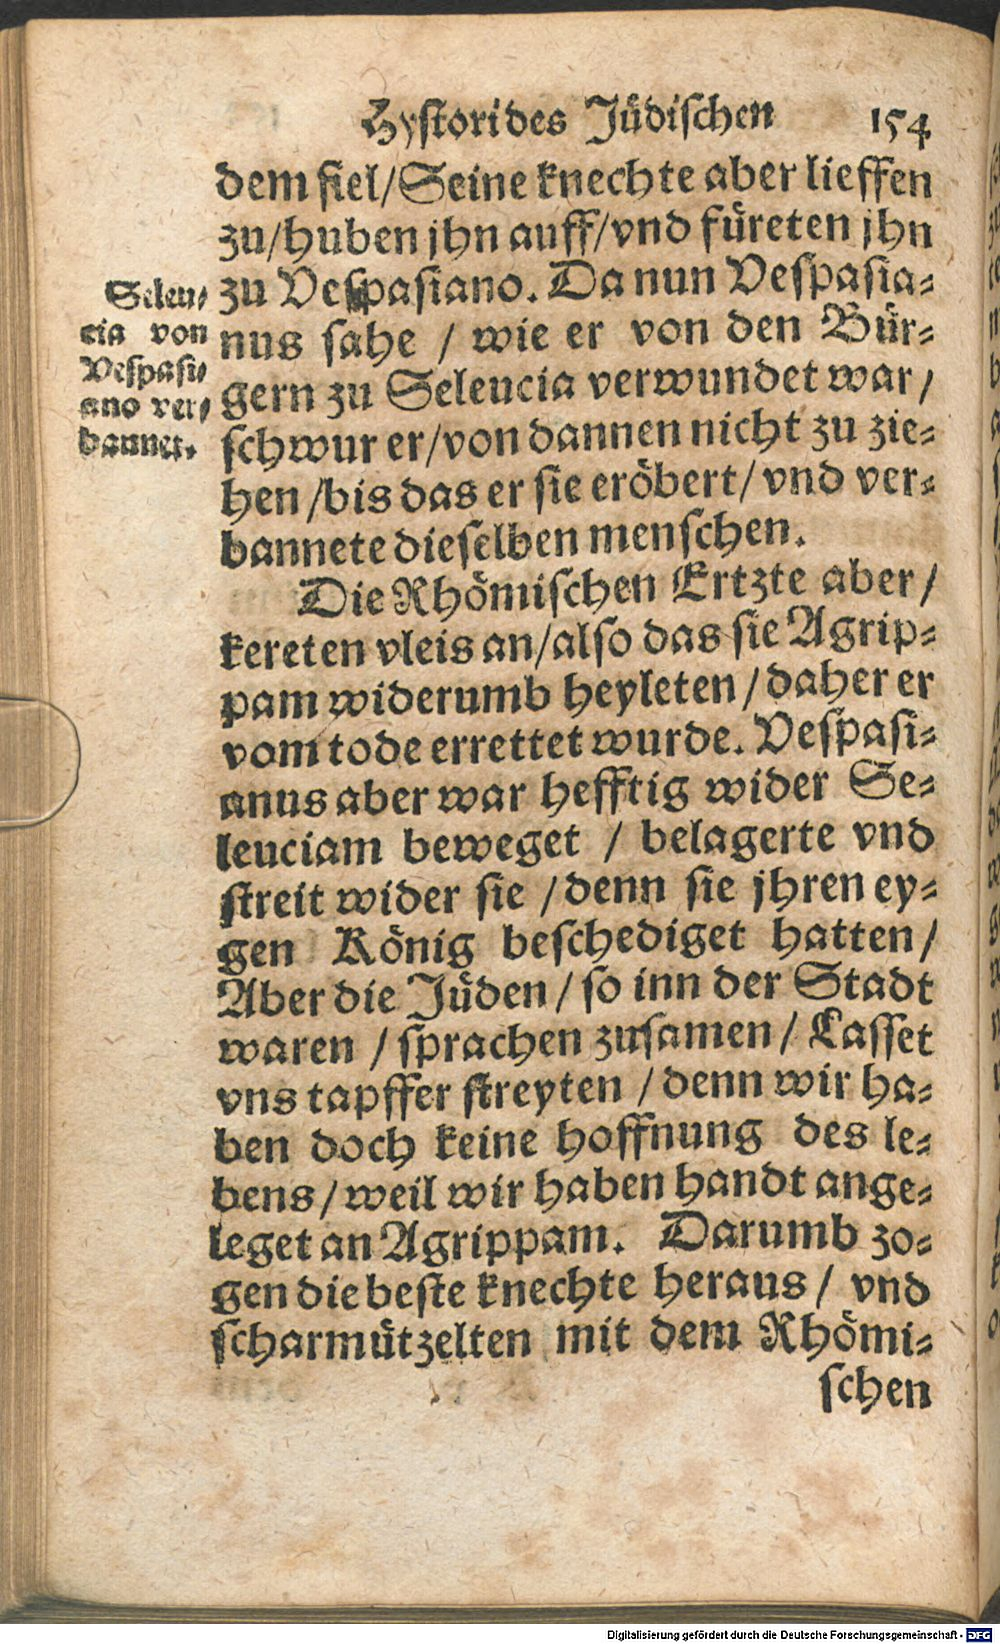 Hystori des Jüdischen 154
dem fiel/Seine knechte aber lieffen
zu/huben jhn auff/vnd füreten jhn
zu Vespasiano. Da nun Vespasia-
nus sahe / wie er von den Bür-
gern zu Seleucia verwundet war/
schwur er/von dannen nicht zu zie-
hen/bis das er sie eröbert/vnd ver-
bannete dieselben menschen.
Seleu-
cia von
Vespasi-
ano ver-
bannet.
Die Rhömischen Ertzte aber/
kereten vleis an/also das sie Agrip-
pam widerumb heyleten/daher er
vom tode errettet wurde. Vespasi-
anus aber war hefftig wider Se-
leuciam beweget / belagerte vnd
streit wider sie /denn sie jhren ey-
gen König beschediget hatten/
Aber die Jüden/so inn der Stadt
waren /sprachen zusamen/Lasset
vns tapffer streyten /denn wir ha-
ben doch keine hoffnung des le-
bens/weil wir haben handt ange-
leget an Agrippam. Darumb zo-
gen die beste knechte heraus/ vnd
scharmützelten mit dem Rhömi-
schen
Digitalisierung gefördert durch die Deutsche Forschungsgemeinschaft - DFG